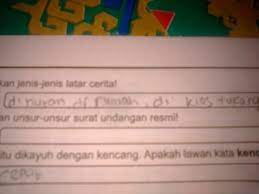 kan jenis-jenis latar cerita!
di rumah, di kios
an unsur-unsur surat undangan resmi!
itu dikayuh dengan kencang. Apakah lawan kata kenc
cepat